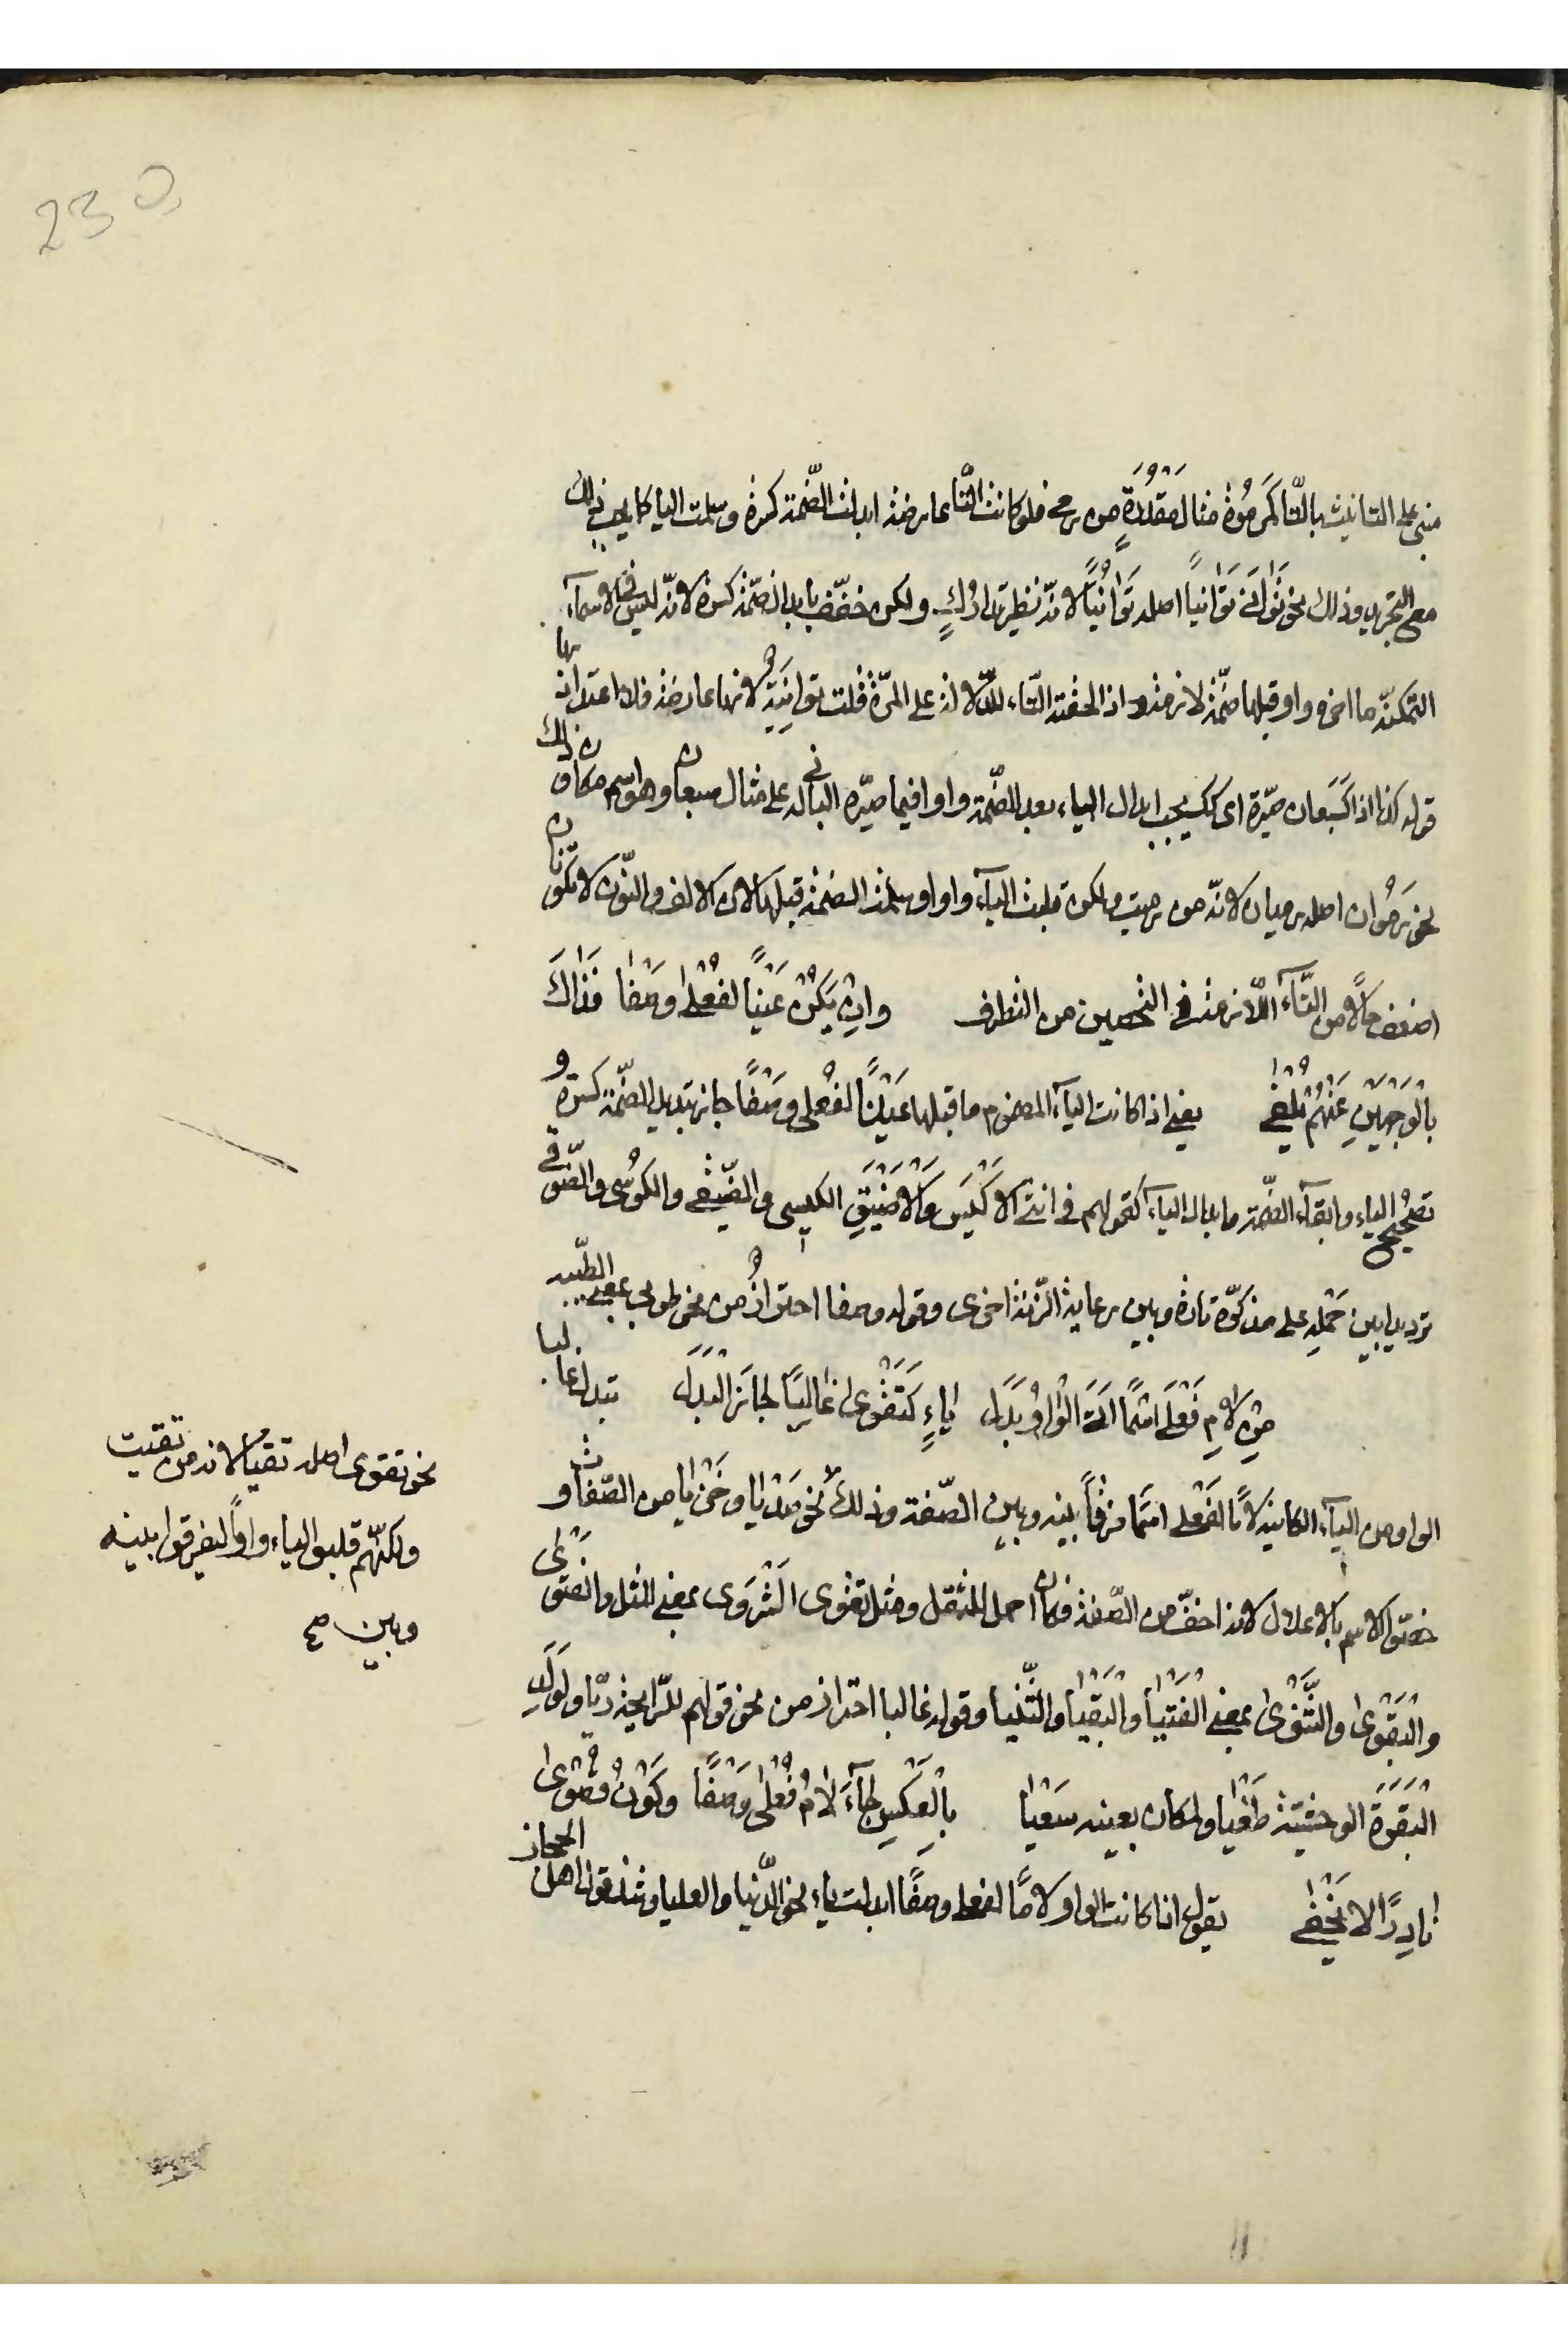 230
مبنى على التانيث بالتا كمَرمُوة مثال مَقدُرَةٍ من رمى فلو كانت التا عارضة ابدلت الضّمة كسرة وسلمت اليا كما يجب ذلك
مع التجرد وذلك نحو تَوَانَى تَوَانياً اصله تَوَانُيًا لانّه نظير تدارُكٍ ولكن خفّف بابدال ضمّته كسرة لانّه ليس فى الاسماء
المتمكنة ما اخره واو قبلها ضمّة لازمة واذا لحقته التاء للدّلالة على المرّة قلت توانِيَةٌ لانها عارضة فلا اعتداد بها
قوله كذا اذا كَسَبُعان صيّره اى كك يجب ابدال الياء بعد الضّمة واوا فيما صيّره البانى له على مثال سبعان وهو اسم مكان وذلك
نحو رَمُوان اصله رميان لانّه من رميت ولكن قلبت الياء واوا وسلمت الضمة قبلها لان الالف والنّون لا تكونان
اضعف حالًا من التّاء اللّازمة فى التحصين من التطرف وان يَكُنْ عَيْنًا لفُعْلىٰ وصْفا فذاكَ
بالوَجهَيْنِ عَنْهُم يُلْفى يعنى اذا كانت الياء المضموم ما قبلها عَيْنًا لفُعلى وصْفًا جاز تبديل الضّمة كسرة و
تصحيحُ الياء وابقاء الضّمة وابدال الياء كقولهم فى انثى الاَكْيَس والاَضْيَق الكيسى والضّيقى والكُوسى والضّوقى
ترديدا بين حَمْلِهِ على مذكّره تارة وبين رعاية الزّنة اخرى وقوله وصفا احترازٌ من نحو طوبى بمعنى الطّيبه
مِنْ لامِ فَعْلَى اسْمًا اَتَى الوَاوُ بَدَل ياءٍ كَتَقْوى غالبًا جا ذا البَدَل تبدل غالبا
الواو من الياء الكاينة لامًا لفَعْلى اسمًا فرقًا بينه وبين الصّفة وذلك نحو صَدْيا وخَزْيا من الصّفات و
خصّوا الاسم بالاعلال لانه اخفّ من الصّفة فكان احمل للثقل ومثل تقوى الشَرْوَى بمعنى المثل والفتوى
والبَقْوىٰ والثَّنْوىٰ بمعنى الفُتْيا والبُقْيا والثُّنيا وقوله غالبا احتراز من نحو قولهم للرّايحة ريّا ولوَلَدِ
البَقَرَة الوحشيّة طَغْيا ولمكان بعينه سَعْيا بِالعَكسِ جاءَ لامُ فُعْلىٰ وَصْفًا وكَوْنُ قُصْوىٰ
نادِرًا لا يَخْفى يقول اذا كانت الواو لامًا لفعلى وصفًا ابدلت ياء نحو الدّنيا والعليا وشذ قول اهل الحجاز
نحو تقوى اصله تقيا لانه من تقيت
ولكنّهم قلبوا الياء واوًا ليفرقوا بينه
وبين صح